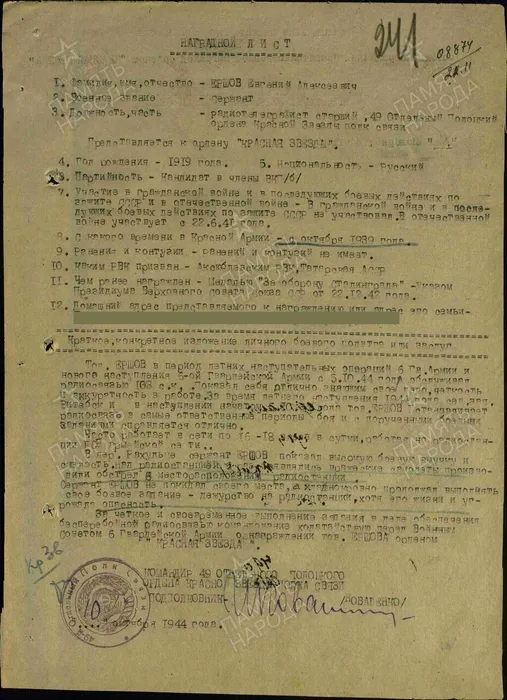 НАГРАДНОЙ ЛИСТ
241
08874
1. Фамилия, имя, отчество - ЕРШОВ Евгений Алексеевич
2. Военное звание - сержант
3. Должность, часть - радиотелеграфист старший, 49 Отдельный Полоцкий
ордена Красной Звезды полк связи
Представляется к ордену "КРАСНАЯ ЗВЕЗДА"
4. Год рождения - 1919 года. 5. Национальность - Русский
6. Партийность - Кандидат в члены ВКП/б/
7. Участие в гражданской войне и в последующих боевых действиях по
защите СССР и в отечественной войне - В гражданской войне и в после-
дующих боевых действиях по защите СССР не участвовал. В отечественной
войне участвует с 22.6.41 года.
8. С какого времени в Красной Армии - с октября 1939 года
9. Ранения и контузии - ранений и контузий не имеет.
10. Каким РВК призван - Аксубаевским РВК, Татарская АССР
11. Чем ранее награжден - Медалью "За оборону Сталинграда" - Указом
Президиума Верховного Совета Союза ССР от 22.12.42 года.
12. Домашний адрес представляемого к награждению или адрес его семьи-
Краткое, конкретное изложение личного боевого подвига или заслуг
Тов. ЕРШОВ в период летних наступательных операций 6 Гв. Армии и
нового наступления 6-ой Гвардейской Армии с 5.10.44 года обслуживал
радиосвязь 103 с.к. Показал себя отлично знающим свое дело, четкость
и аккуратность в работе. За время летнего наступления 1944
Витебск и в наступлении начатом тов. ЕРШОВ
радиосвязь в самые ответственные периоды боя и с порученными
заданиями справляется отлично.
Часто работает в сети по 16-18 часов в сутки, работая на радиостан-
ции РСБ
В дер. сержант ЕРШОВ показал высокую боевую выучку и
смелость, над радиостанцией вражеские самолеты произво-
дили обстрел месторасположения радиостанции.
Сержант ЕРШОВ не покинул своего места, а хладнокровно продолжал выполнять
свое боевое задание - дежурство на радиостанции, хотя его жизни и уг-
рожала опасность.
За четкое и своевременное выполнение задания в деле обеспечения
бесперебойной радиосвязью командование ходатайствует перед Военным
Советом 6 Гвардейской Армии о награждении тов. ЕРШОВА орденом
"КРАСНАЯ ЗВЕЗДА"
Кр Зв
КОМАНДИР 49 ОТДЕЛЬНОГО ПОЛОЦКОГО
ОРДЕНА КРАСНОЙ ЗВЕЗДЫ ПОЛКА СВЯЗИ
ПОДПОЛКОВНИК - /КОВАЛЕНКО/
10 октября 1944 года.
ПАМЯТЬ НАРОДА